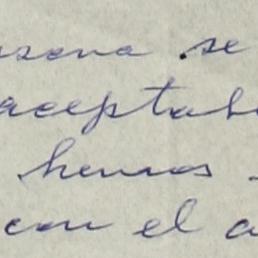 se
aceptab
hemos
con el a